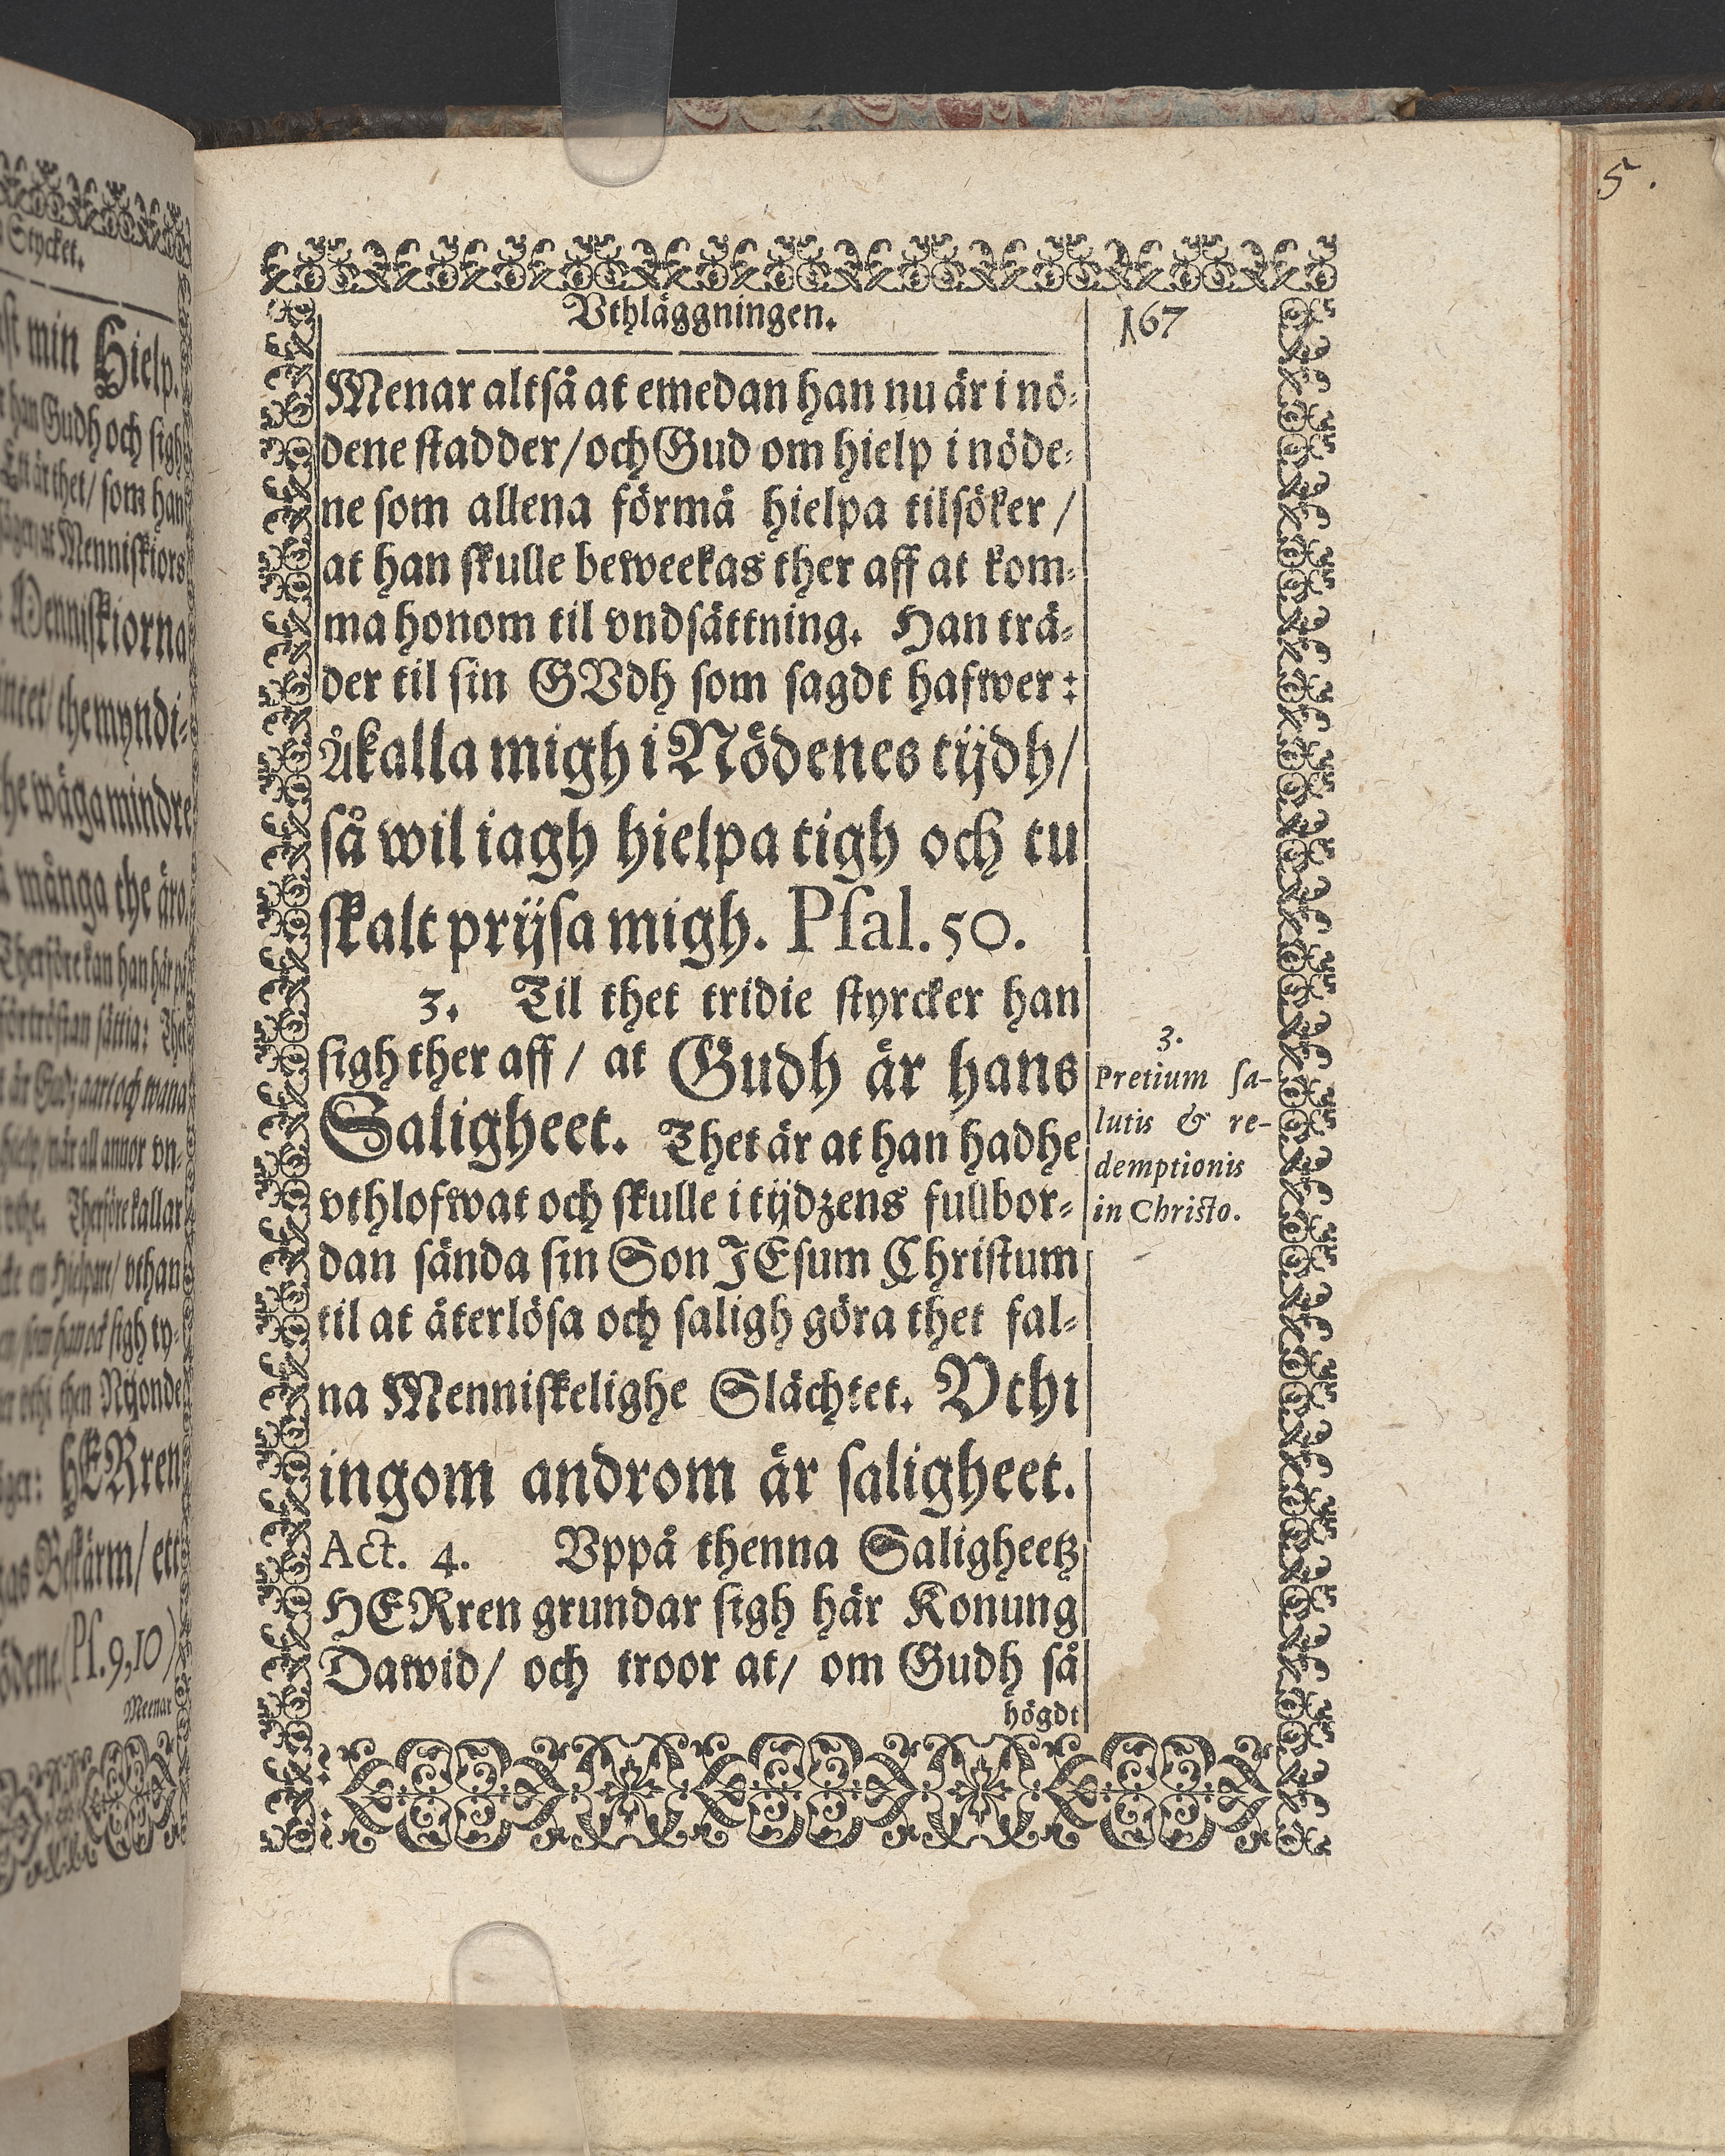 Stycket.
min Hielp.
han Gudh och sigh
är thet/ som han
at Menniskiors
Menniskiorna
the myndi-
wåga mindre
många the äro.
Therföre kan han här på
förtröstan sättia: Thet
är Gudz aart och wana
hielp/ när all annor vn-
Therföre kallar
en Hielpare/ vthan
som han ock sigh ty-
vthi then Nijonde
HERren
Beskärm/ ett
(Ps. 9,10)
Meenar
5.
Vthläggningen.
167
Menar altså at emedan han nu är i nö-
dene stadder/ och Gud om hielp i nöde-
ne som allena förmå hielpa tilsöker/
at han skulle beweekas ther aff at kom-
ma honom til vndsättning. Han trä-
der til sin GVdh som sagdt hafwer:
Åkalla migh i Nödenes tijdh/
så wil iagh hielpa tigh och tu
skalt prijsa migh. Psal. 50.
3. Til thet tridie styrcker han
sigh ther aff/ at Gudh är hans
Saligheet. Thet är at han hadhe
vthlofwat och skulle i tijdzens fullbor-
dan sända sin Son JEsum Christum
til at återlösa och saligh göra thet fal-
na Menniskelighe Slächtet. Vthi
ingom androm är saligheet.
Act. 4. Vppå thenna Saligheetz
HERren grundar sigh här Konung
Dawid/ och troor at/ om Gudh så
högdt
3.
Pretium sa-
lutis & re-
demptionis
in Christo.